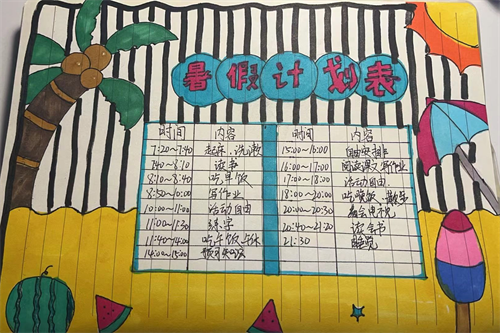 暑假计划表
时间 内容 时间 内容
7:20~7:40 起床、洗漱 15:00~16:00 自由安排
7:40~8:10 读书 16:00~17:00 阅读课文 写作业
8:10~8:40 吃早饭 17:00~18:00 活动自由
8:50~10:00 写作业 18:00~20:00 吃晚饭、散步
10:00~11:00 活动自由 20:00~20:30 看会电视
11:00~11:30 练字 20:40~21:20 读会书
11:40~14:00 吃午饭 午休 21:30 睡觉
14:00~15:00